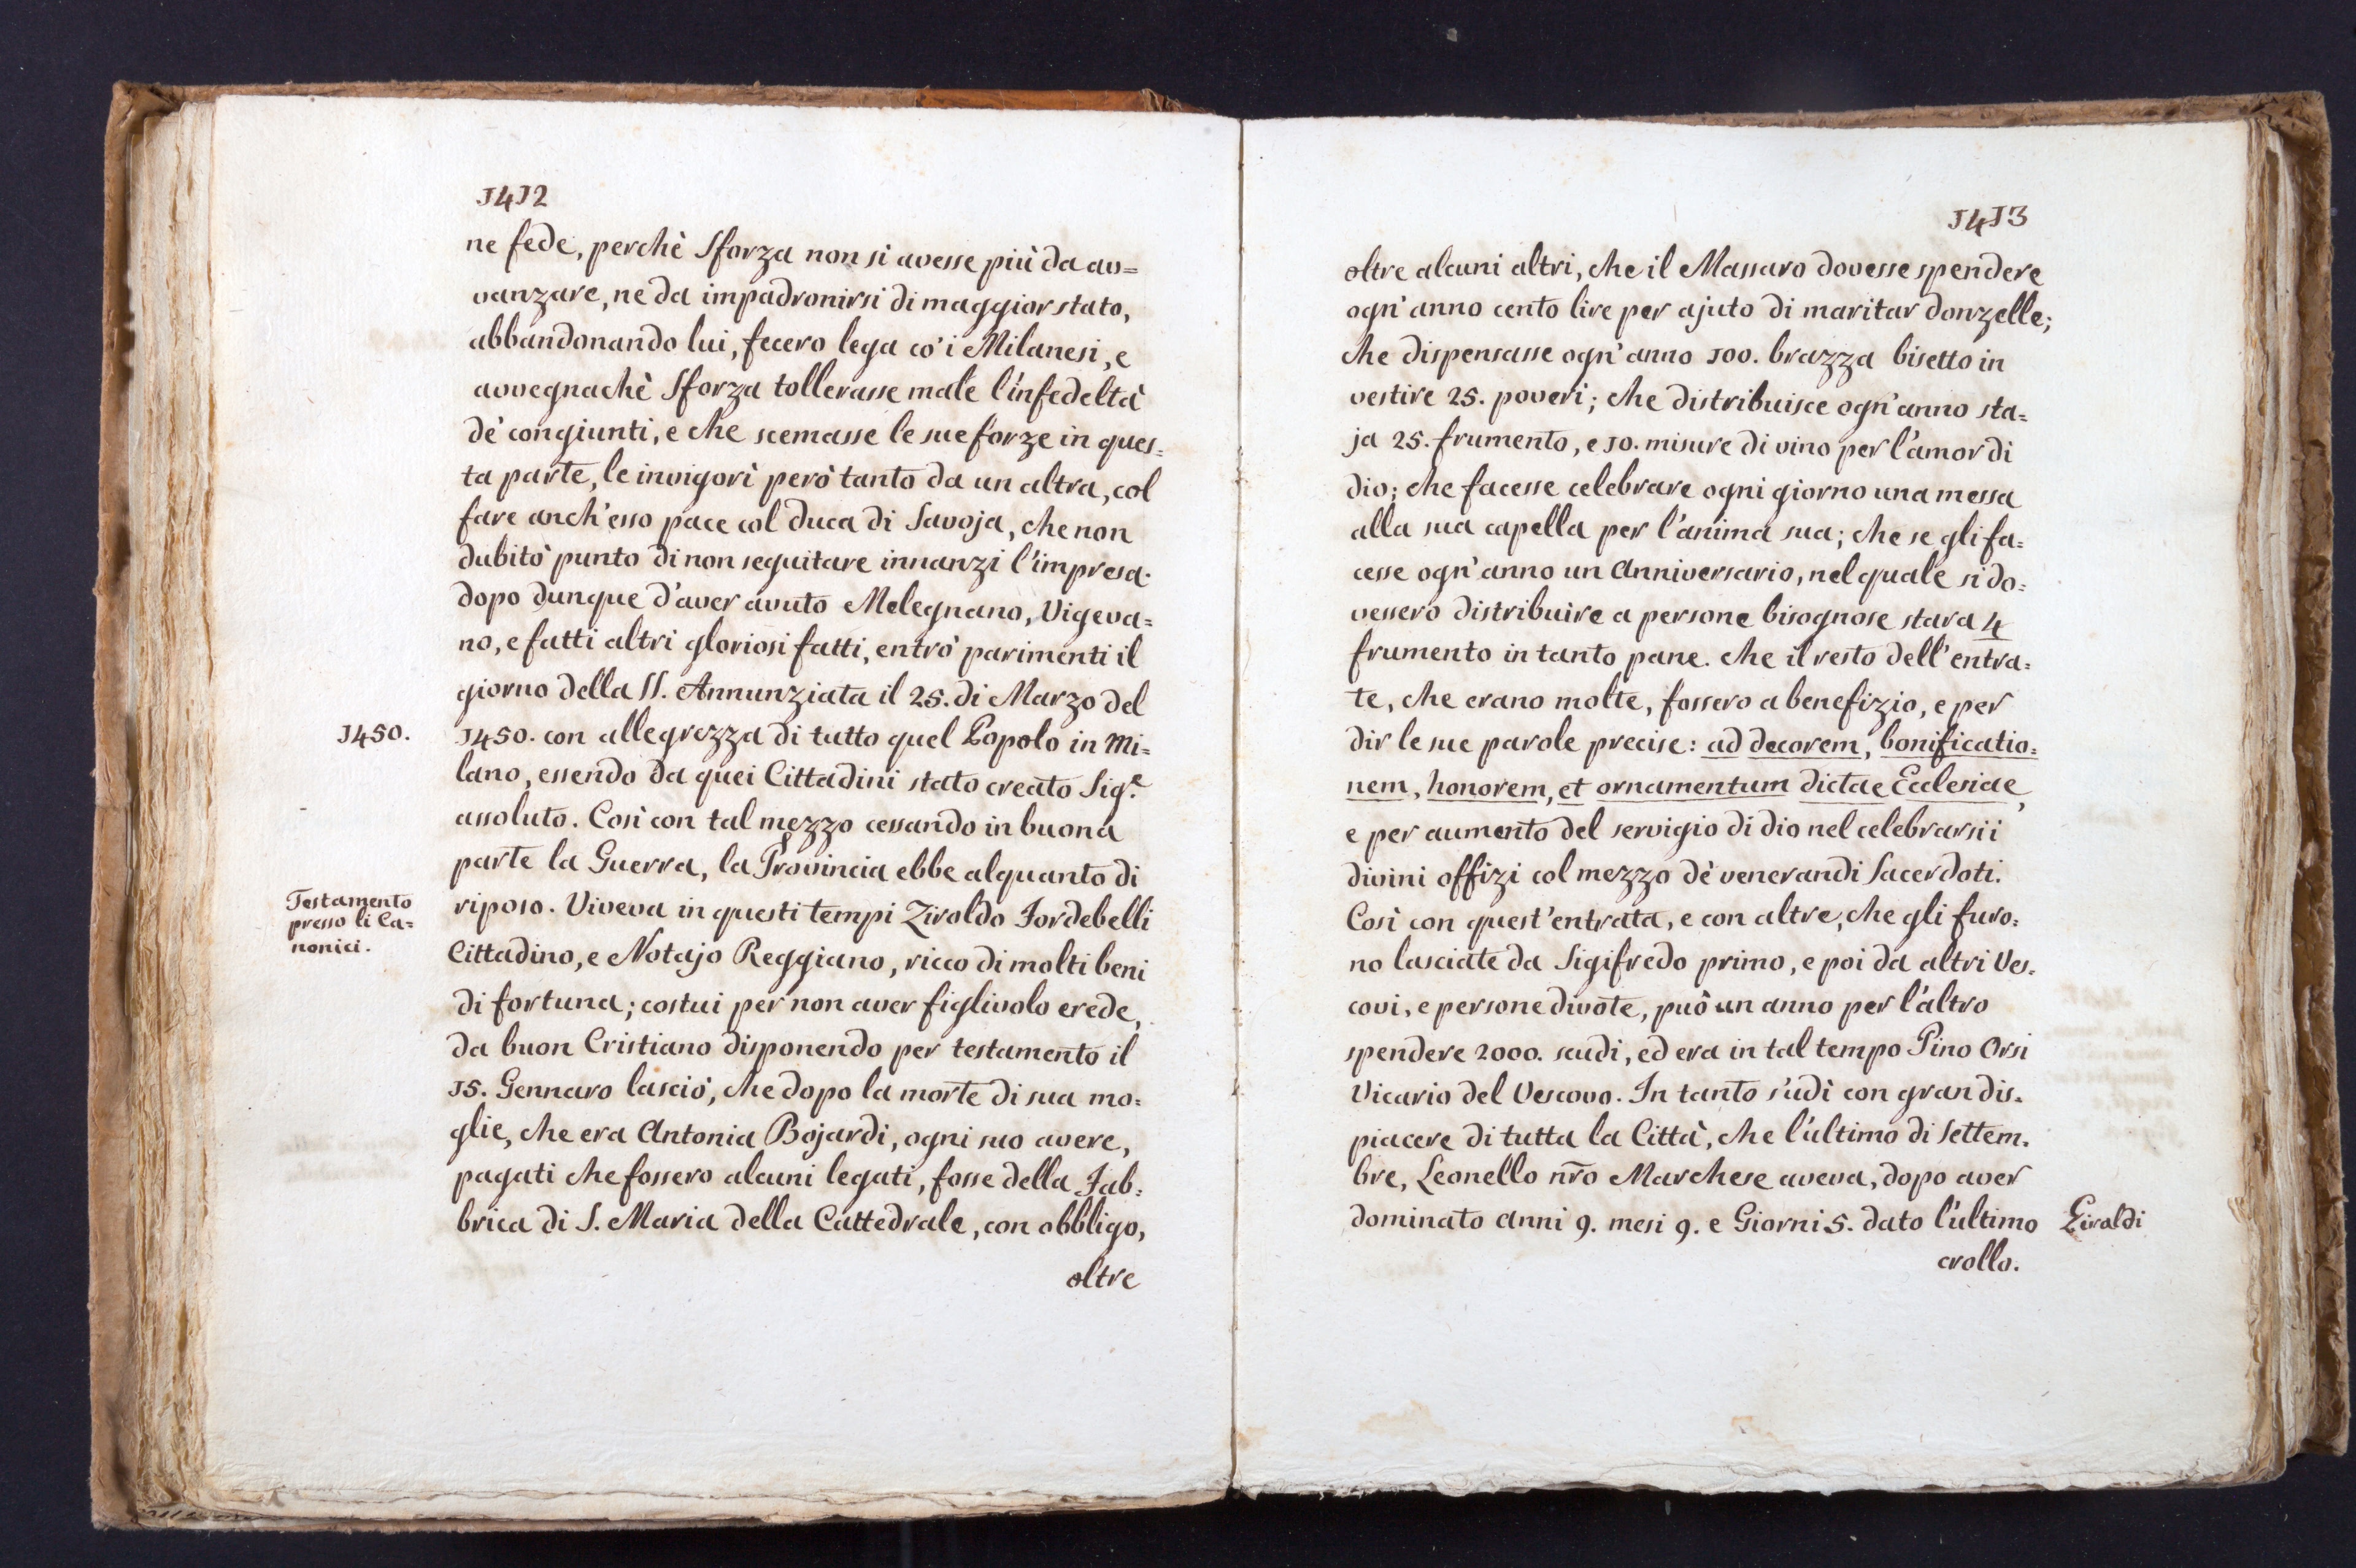 1412
ne fede, perchè Sforza non si avesse più da av=
vanzare, ne da impadronirsi di maggior stato,
abbandonando lui, fecero lega co' i Milanesi, e
avvegnachè Sforza tollerasse male l'infedeltà
de' congiunti, e che scemasse le sue forze in ques=
ta parte, le invigorì però tanto da un altra, col
fare anch'esso pace col Duca di Savoja, che non
dubitò punto di non seguitare innanzi l'impresa.
dopo dunque d'aver avuto Melegnano, Vigeva=
no, e fatti altri gloriosi fatti, entrò parimenti il
giorno della SS. Annunziata il 25. di Marzo del
1450.
1450. con allegrezza di tutto quel Popolo in Mi=
lano, essendo da quei Cittadini stato creato Sig.e
assoluto. Così con tal mezzo cessando in buona
parte la Guerra, la Provincia ebbe alquanto di
Testamento
presso li Ca=
nonici.
riposo. Viveva in questi tempi Ziroldo Fordebelli
Cittadino, e Notajo Reggiano, ricco di molti beni
di fortuna; costui per non aver figlivolo erede,
da buon Cristiano disponendo per testamento il
15. Gennaro lasciò, che dopo la morte di sua mo=
glie, che era Antonia Bojardi, ogni suo avere,
pagati che fossero alcuni legati, fosse della Fab=
brica di S. Maria della Cattedrale, con obbligo,
oltre
1413
oltre alcuni altri, che il Massaro dovesse spendere
ogn'anno cento lire per ajuto di maritar donzelle;
che dispensasse ogn'anno 100. brazza bisetto in
vestire 25. poveri; che distribuisce ogn'anno sta=
ja 25. frumento, e 10. misure di vino per l'amor di
dio; che facesse celebrare ogni giorno una messa
alla sua capella per l'anima sua; che se gli fa=
cesse ogn'anno un Anniversario, nel quale si do=
vessero distribuire a persone bisognose stara 4
frumento in tanto pane. che il resto dell'entra=
te, che erano molte, fossero a benefizio, e per
dir le sue parole precise: ad decorem, bonificatio=
nem, honorem, et ornamentum dictae Ecclesiae,
e per aumento del servigio di dio nel celebrarsi i
divini offizi col mezzo dè venerandi Sacerdoti.
Così con quest'entrata, e con altre, che gli furo=
no lasciate da Sigifredo primo, e poi da altri Ves=
covi, e persone divote, può un anno per l'altro
spendere 2000. scudi, ed era in tal tempo Pino Orsi
Vicario del Vescovo. In tanto s'udì con gran dis=
piacere di tutta la Città, che l'ultimo di settem=
bre, Leonello nr̃o Marchese aveva, dopo aver
dominato anni 9. mesi 9. e Giorni 5. dato l'ultimo
Giraldi
crollo.